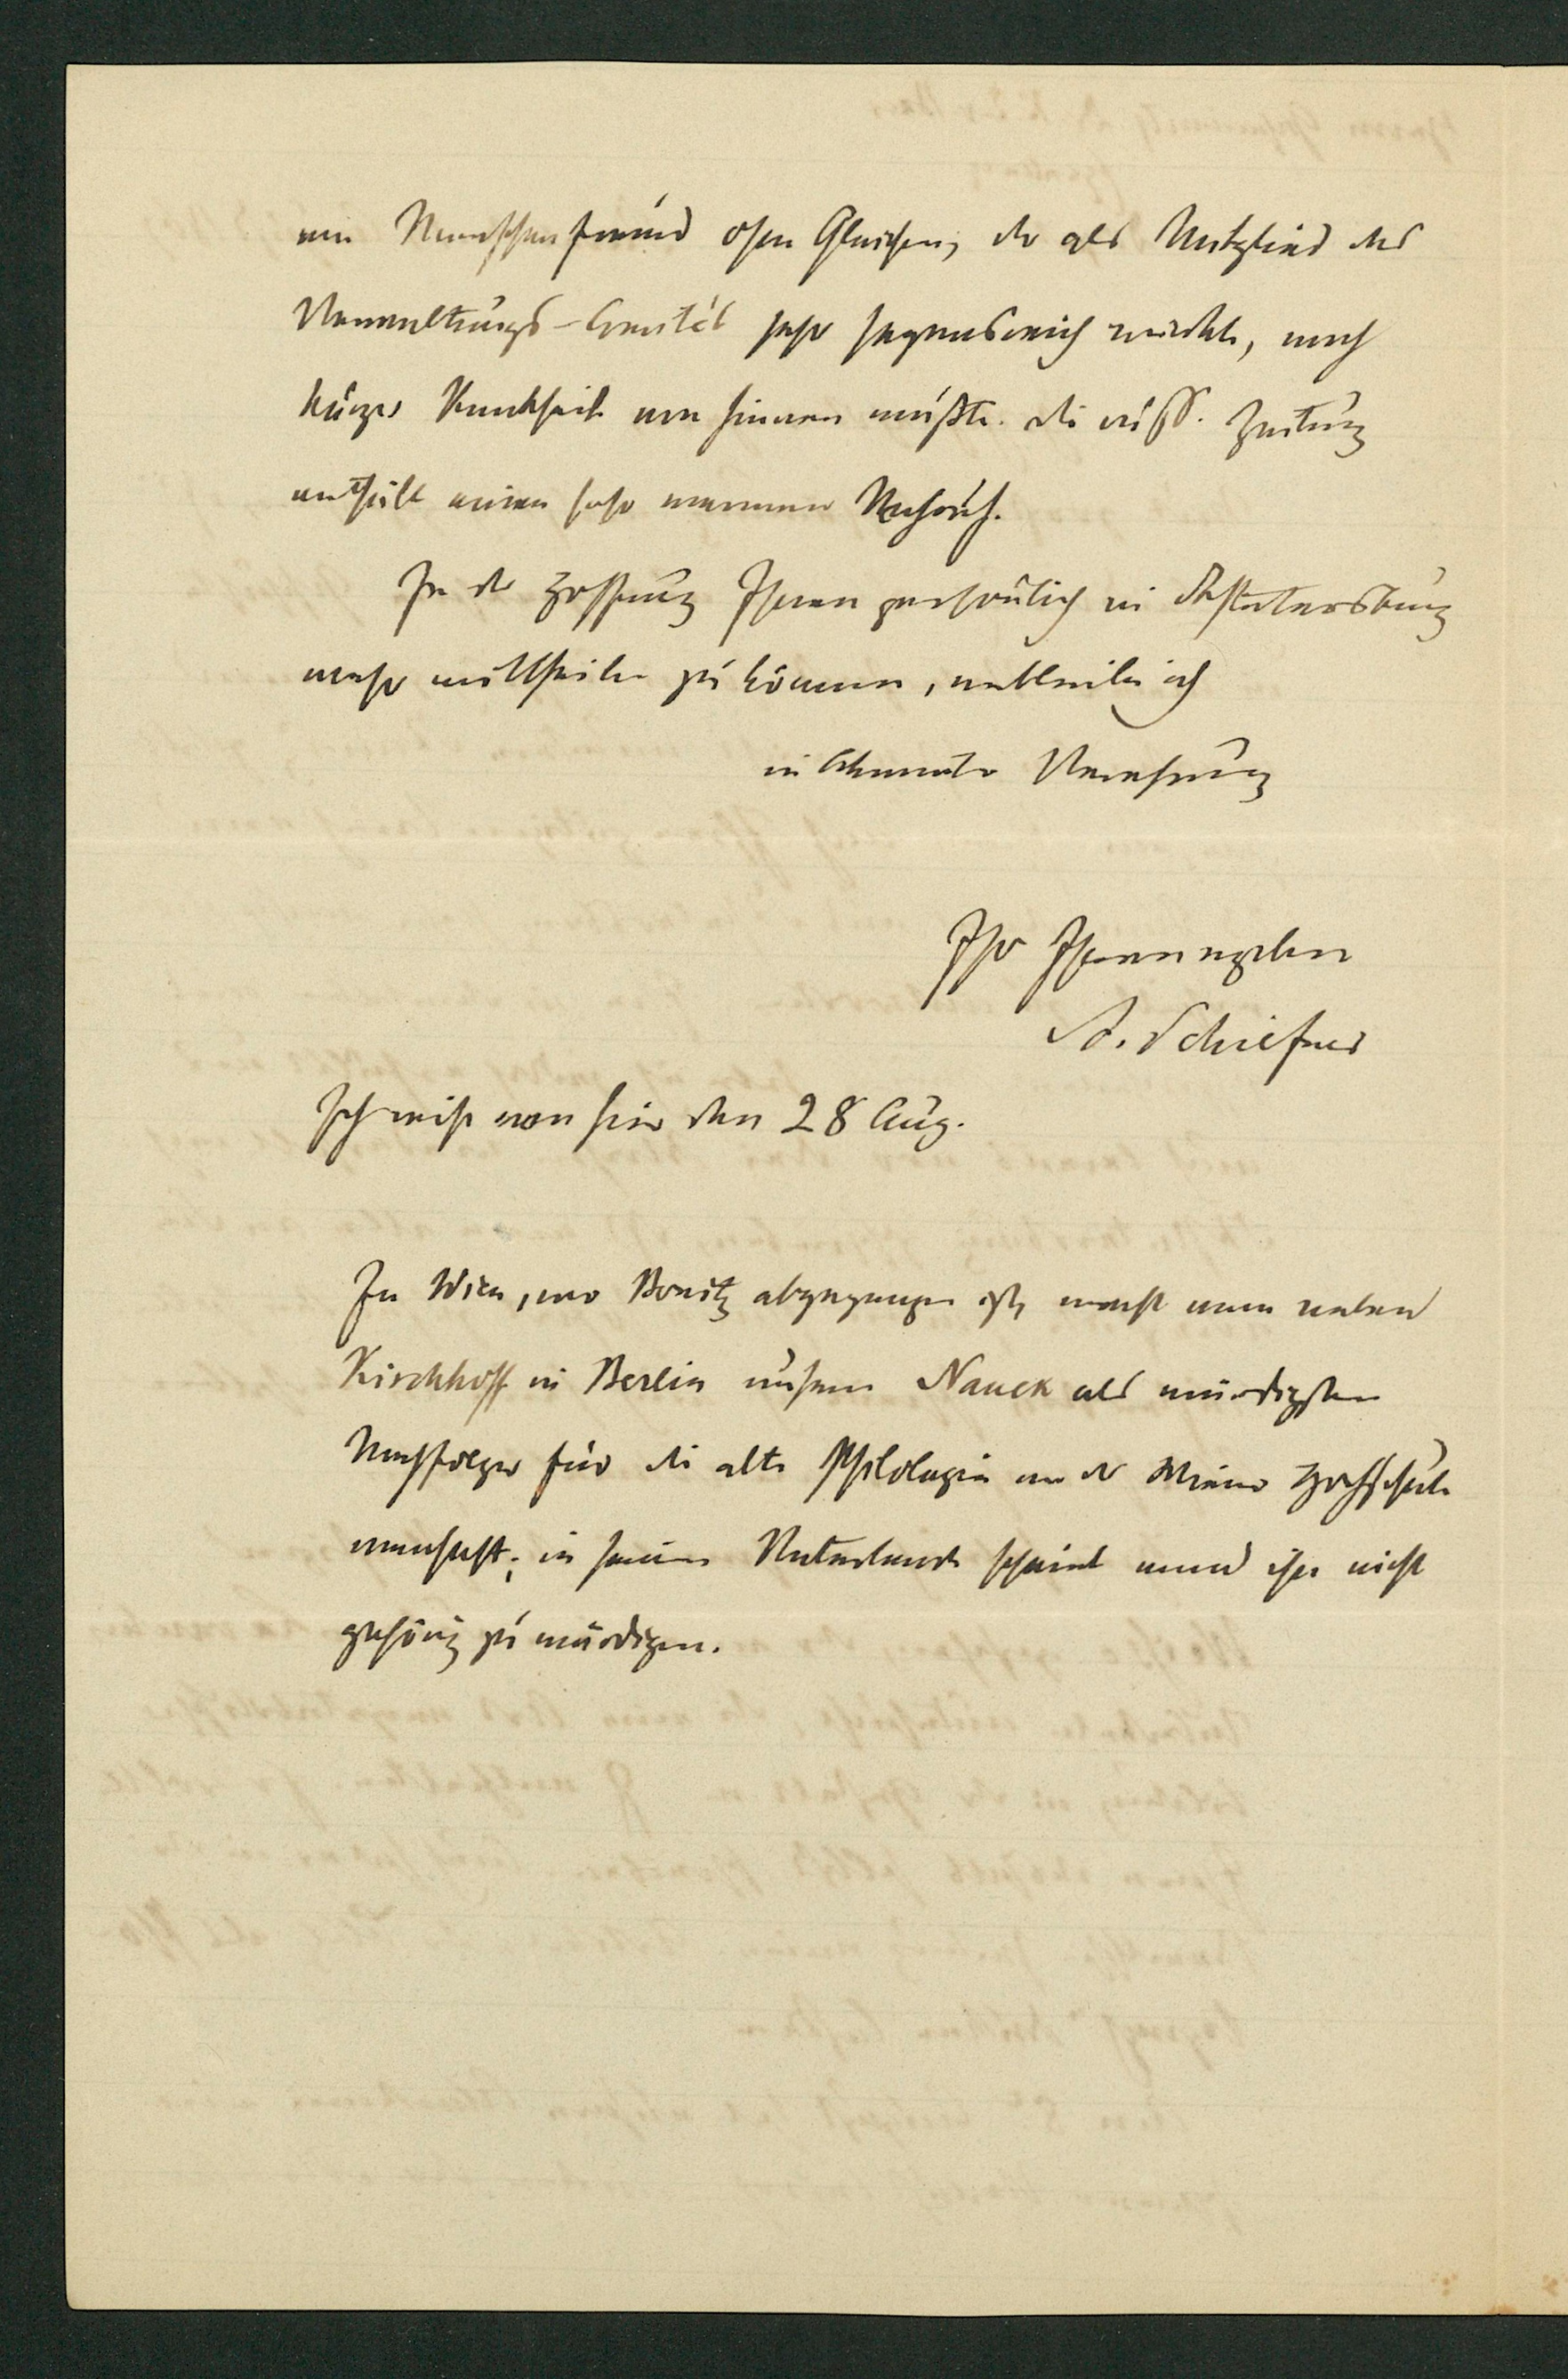 ein Menschenfreund ohne Gleichen, der als Mitglied des
Verwaltungs-Comités sehr segensreich wirkte, nach
kurzer Krankheit von hinnen mußte. Die russ. Zeitung
enthält einen sehr warmen Nachruf.
In der Hoffnung Ihnen persönlich in St Petersburg
mehr mittheilen zu können, verbleibe ich
in bekannter Verehrung
Ihr Ihnen ergebener
A. Schiefner
Ich reise von hier den 28 Aug.
In Wien, wo Bonitz abgegangen ist, macht man neben
Kirchhoff in Berlin unseren Nauck als würdigsten
Nachfolger für die alte Philologie an der Wiener Hochschule
namhaft; in seinem Vaterlande scheint man ihn nicht
gehörig zu würdigen.